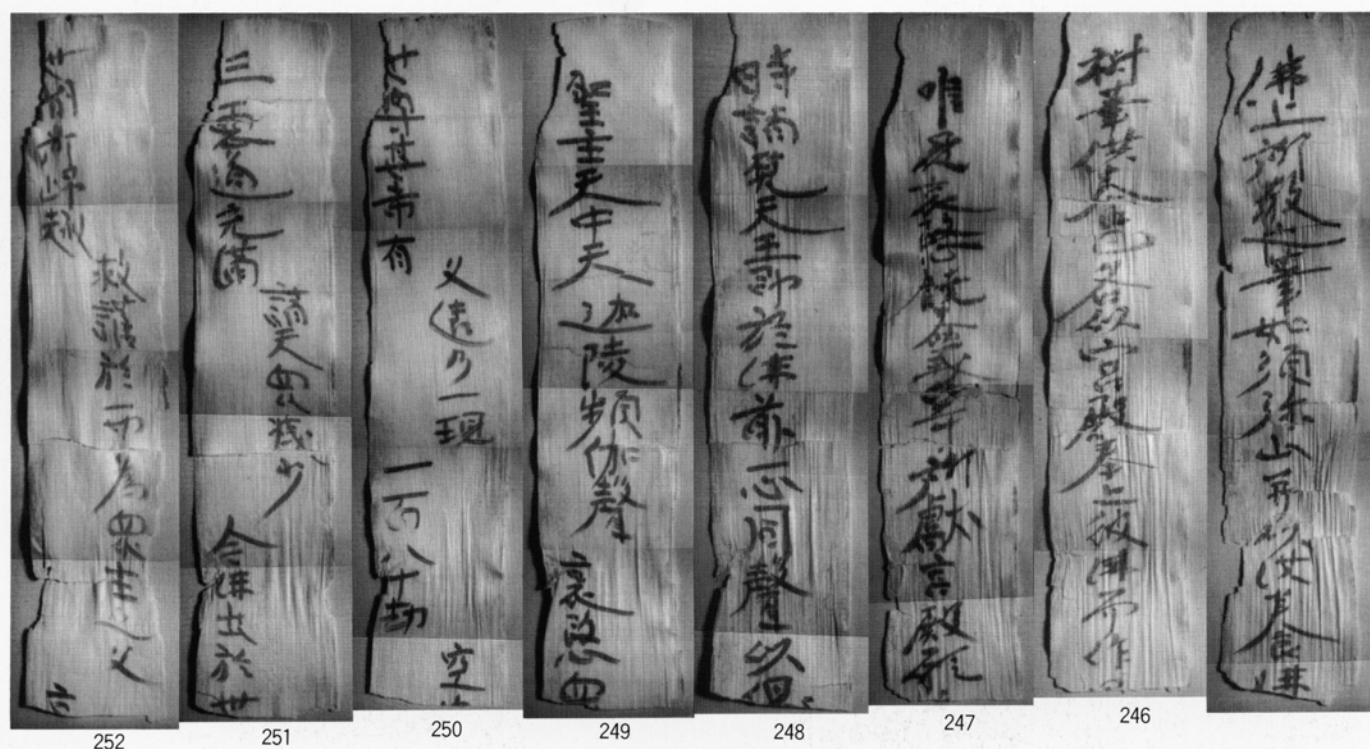 佛上所散之華如須弥山并以供養佛
樹華供養已各以宮殿奉上彼佛而作
246
唯見哀愍饒益我等所獻宮殿願
247
時諸梵天王即於佛前一心同聲以偈
248
聖主天中天 迦陵頻伽聲 哀愍
249
世尊甚希有 久遠乃一現 一百八十劫 空
250
三惡道充滿 諸天衆減少 今佛出於世
251
世間所歸趣 救護於一切 為衆生之父
252